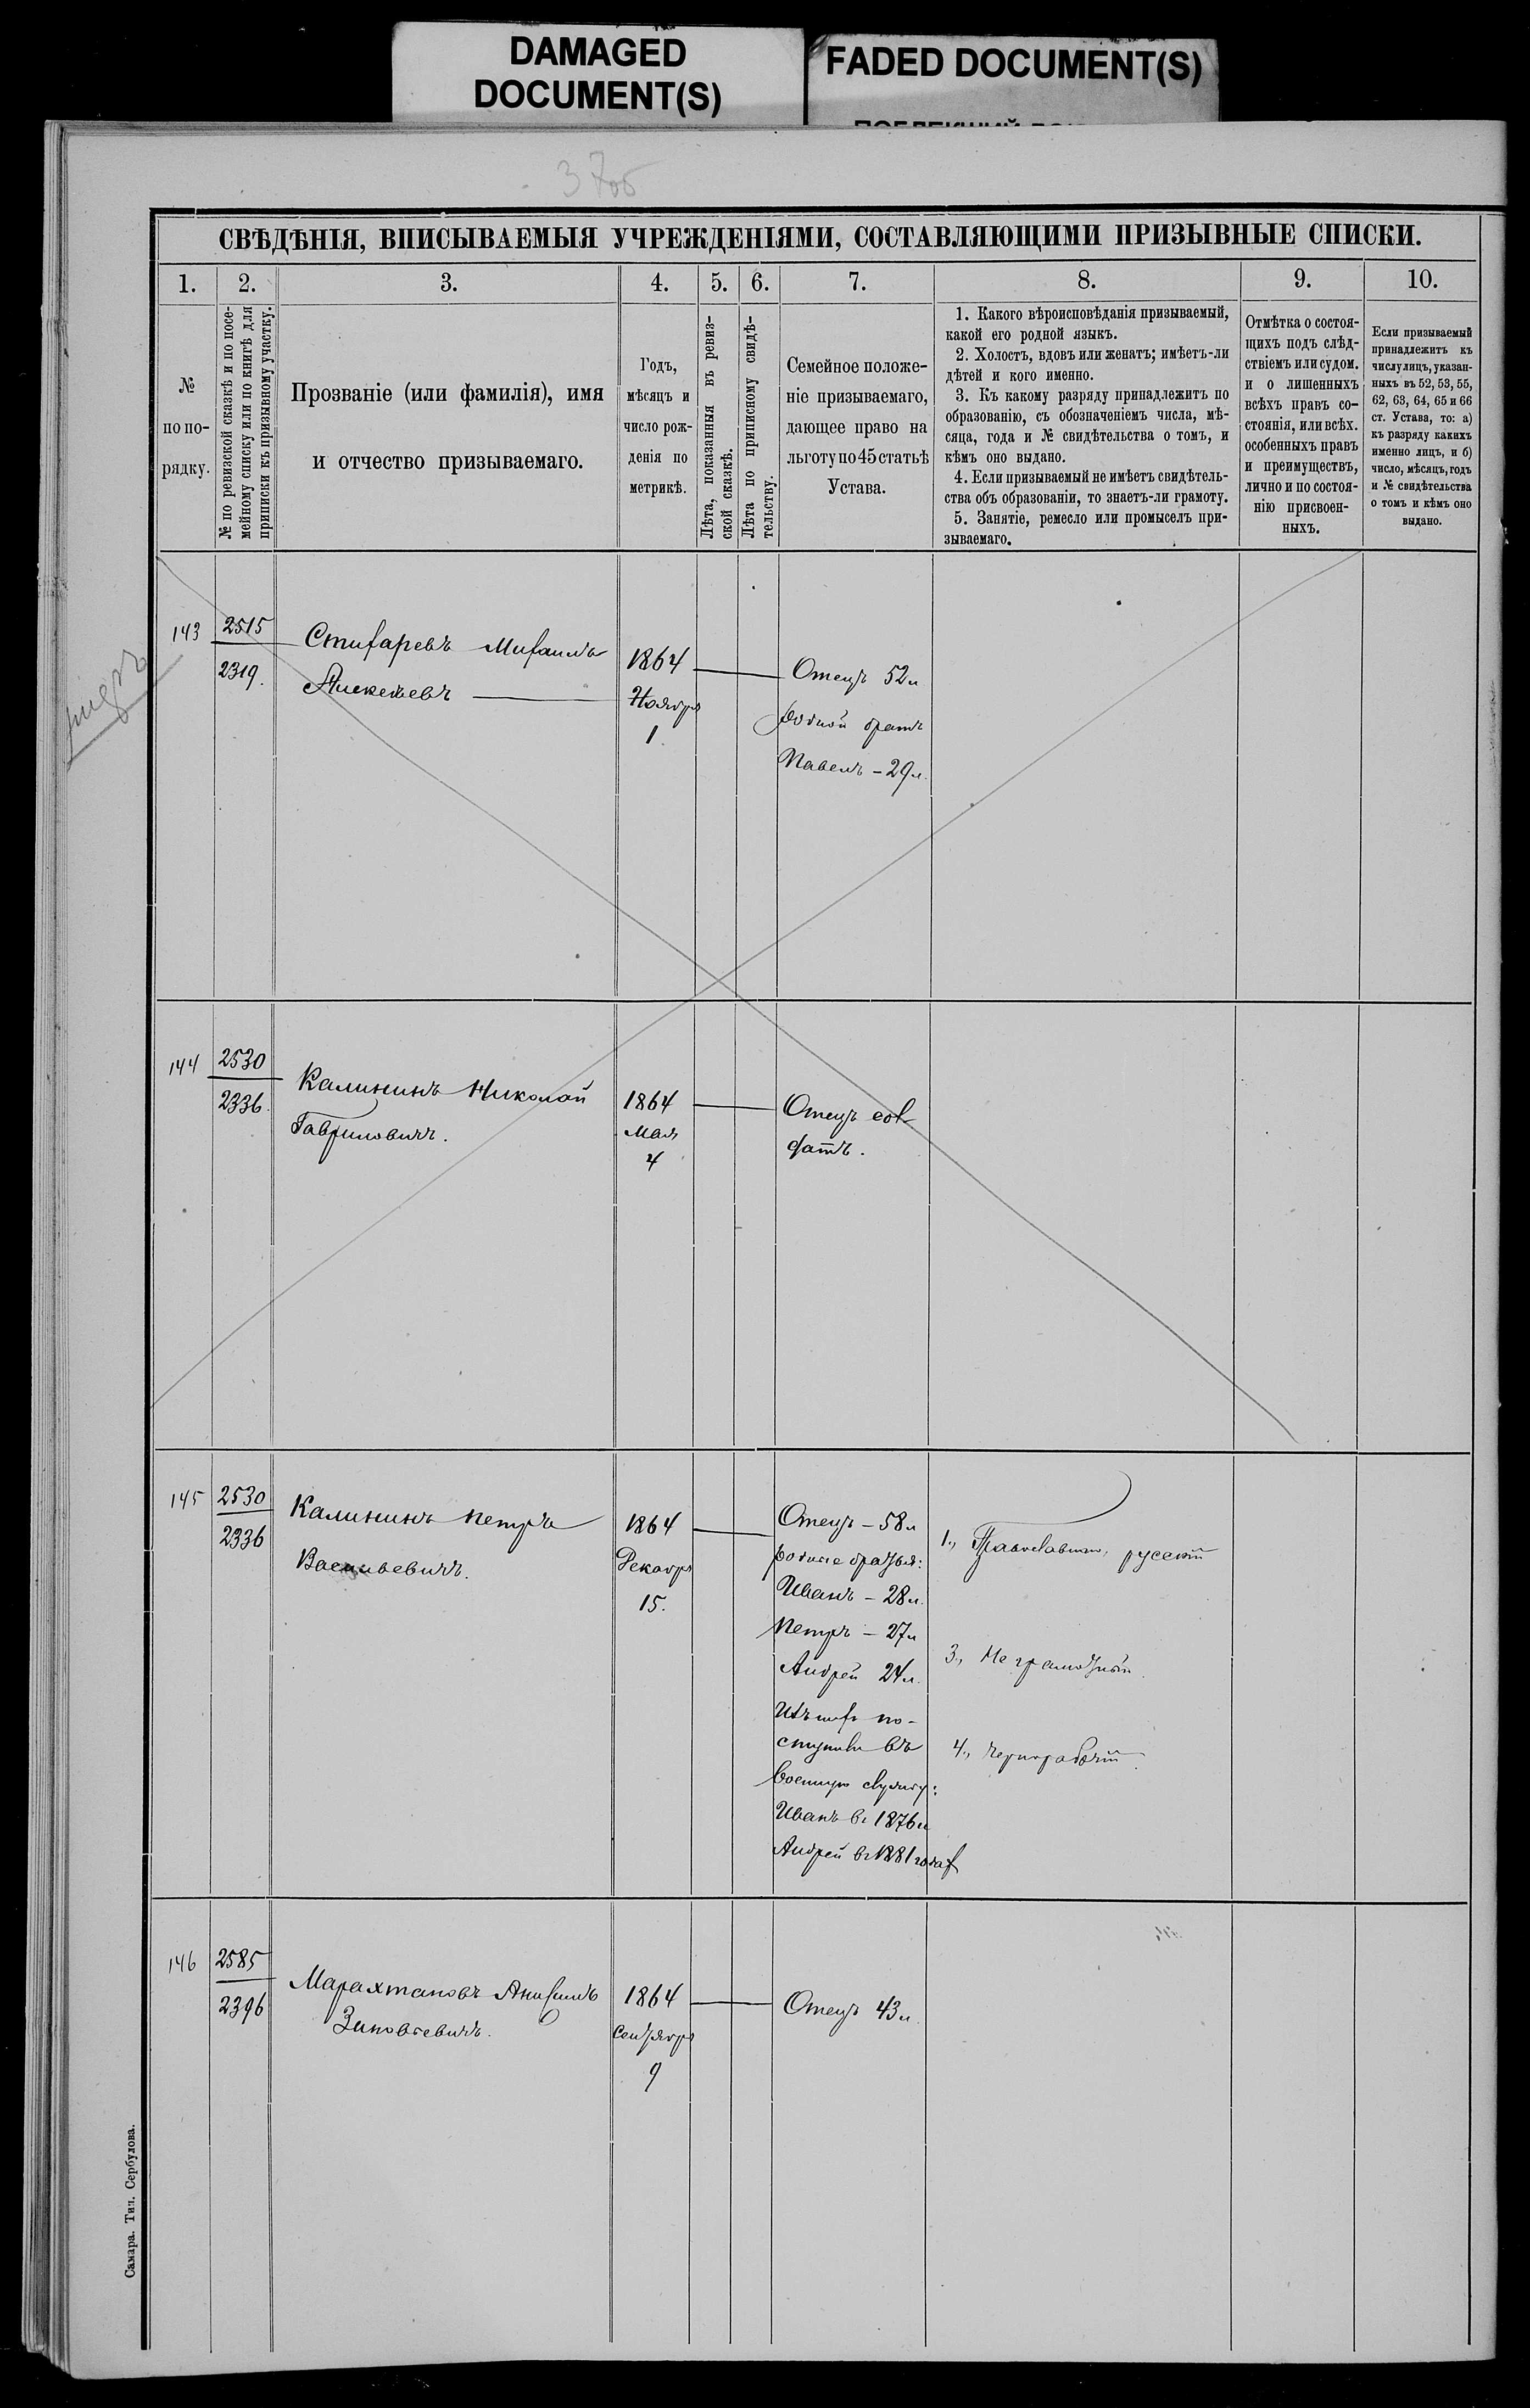 DAMAGED
DOCUMENT(S)
FADED DOCUMENT(S)
37об
СВѢДѢНІЯ, ВПИСЫВАЕМЫЯ УЧРЕЖДЕНІЯМИ, СОСТАВЛЯЮЩИМИ ПРИЗЫВНЫЕ СПИСКИ.
1. 2. 3. 4. 5. 6. 7. 8. 9. 10.
№
по по-
рядку.
№ по ревизской сказкѣ и по посе-
мейному списку или по книгѣ для
приписки къ призывному участку.
Прозваніе (или фамилія), имя
и отчество призываемаго.
Годъ,
мѣсяцъ и
число рож-
денія по
метрикѣ.
Лѣта, показанныя въ ревиз-
ской сказкѣ.
Лѣта по приписному свидѣ-
тельству.
Семейное положе-
ніе призываемаго,
дающее право на
льготу по 45 статьѣ
Устава.
1. Какого вѣроисповѣданія призываемый,
какой его родной языкъ.
2. Холостъ, вдовъ или женатъ; имѣетъ-ли
дѣтей и кого именно.
3. Къ какому разряду принадлежитъ по
образованію, съ обозначеніемъ числа, мѣ-
сяца, года и № свидѣтельства о томъ, и
кѣмъ оно выдано.
4. Если призываемый не имѣетъ свидѣтель-
ства объ образованіи, то знаетъ-ли грамоту.
5. Занятіе, ремесло или промыселъ при-
зываемаго.
Отмѣтка о состоя-
щихъ подъ слѣд-
ствіемъ или судом.
и о лишенныхъ
всѣхъ правъ со-
стоянія, или всѣх.
особенныхъ правъ
и преимуществъ,
лично и по состоя-
нію присвоен-
ныхъ.
Если призываемый
принадлежитъ къ
числу лицъ, указан-
ныхъ въ 52, 53, 55,
62, 63, 64, 65 и 66
ст. Устава, то: а)
къ разряду какихъ
именно лицъ, и б)
число, мѣсяцъ, годъ
и № свидѣтельства
о томъ и кѣмъ оно
выдано.
143
2515
2319.
Стихаревъ Михаилъ
Алексѣевъ
1864
Ноября
1.
Отецъ 52л
родной братъ
Павелъ – 29л.
144
2530
2336.
Калининъ Николай
Гавриловичъ.
1864
Мая
4
Отецъ сол-
датъ.
145
2530
2336
Калининъ Петръ
Васильевичъ.
1864
Декабря
15.
Отецъ – 58л
родные братья:
Иванъ – 28л.
Петръ – 27л
Андрей 24л.
Изъ них по-
ступили въ
военную службу:
Иванъ въ 1876 и
Андрей въ 1881 годах
1., Православный, русскій
3., Неграмотный.
4., Чернорабочій.
146
2585
2396
Марахтановъ Анисимъ
Зиновьевичъ.
1864
Сентября
9
Отецъ 43л.
Самара. Тип. Сербулова.